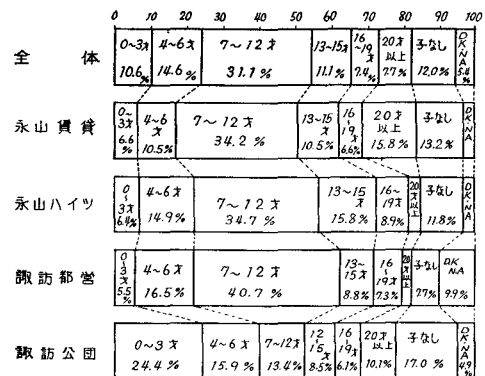 0 10 20 30 40 50 60 70 80 90 100
全体 0~3才 10.6% 4~6才 14.6% 7~12才 31.1% 13~15才 11.1% 16~19才 7.4% 20才以上 7.7% 子なし 12.0% DK NA 5.4%
永山賃貸 0~3才 6.6% 4~6才 10.5% 7~12才 34.2% 13~15才 10.5% 16~19才 6.6% 20才以上 15.8% 子なし 13.2% DK NA
永山ハイツ 0~3才 6.4% 4~6才 14.9% 7~12才 34.7% 13~15才 15.8% 16~19才 8.9% 20才以上 子なし 11.8% DK NA
諏訪都営 0~3才 5.5% 4~6才 16.5% 7~12才 40.7% 13~15才 8.8% 16~19才 7.3% 20才以上 子なし 7.7% DK NA 9.9%
諏訪公団 0~3才 24.4% 4~6才 15.9% 7~12才 13.4% 12~15才 8.5% 16~19才 6.1% 20才以上 10.1% 子なし 17.0% DK NA 4.9%